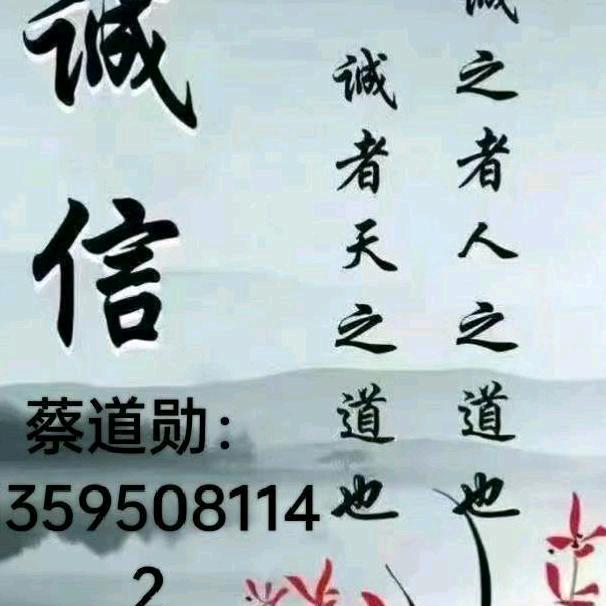 诚信
诚者天之道也
诚之者人之道也
蔡道勋：
3595081142